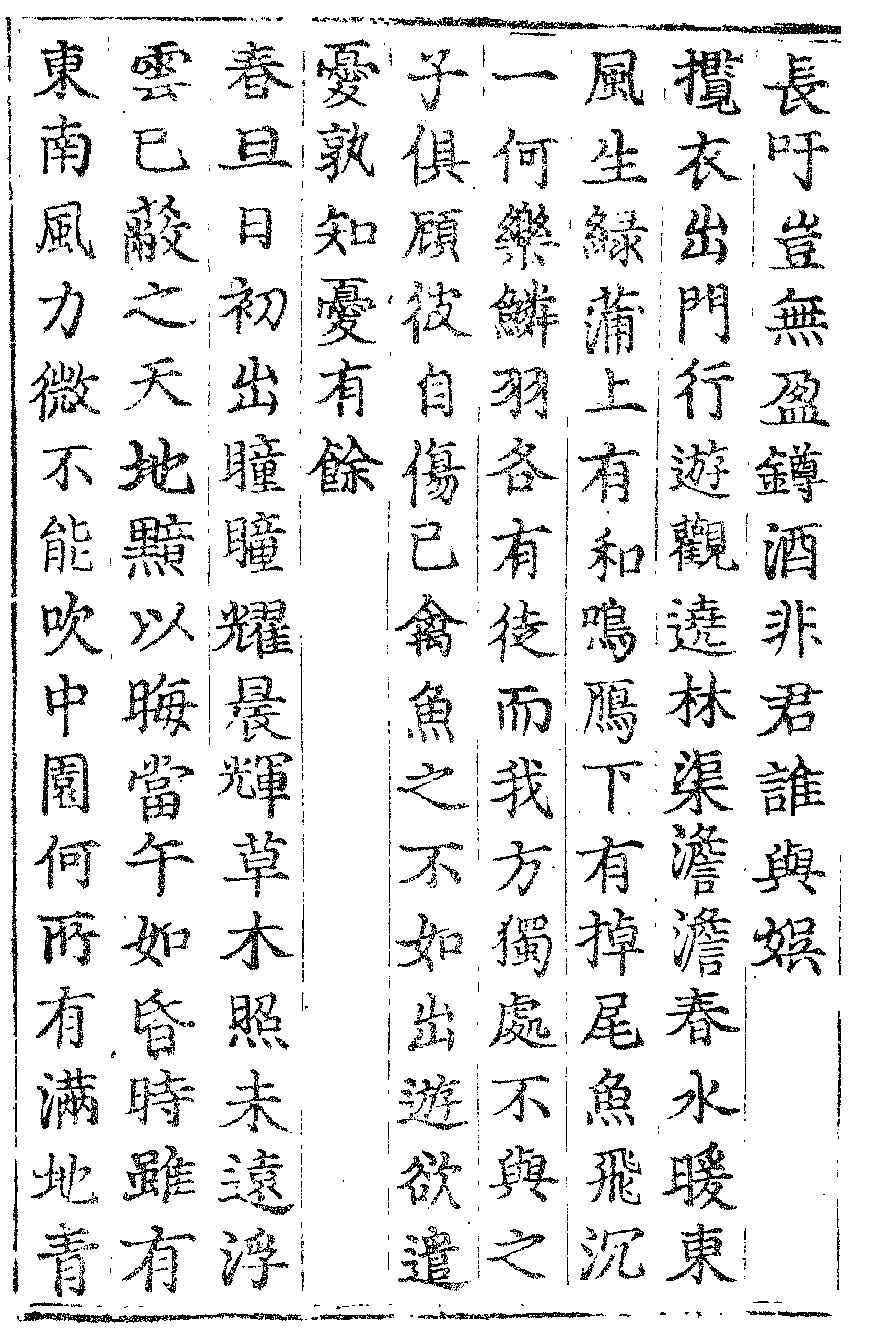 長吁豈無盈罇酒非君誰與娛
攬衣出門行遊觀遶林渠澹澹春水暖東
風生綠蒲上有和鳴鴈下有掉尾魚飛沉
一何樂鱗羽各有徒而我方獨處不與之
子俱顧彼自傷已禽魚之不如出遊欲遣
憂孰知憂有餘
春旦日初出曈曈耀晨輝草木照未遠浮
雲已蔽之天地黯以晦當午如昏時雖有
東南風力微不能吹中園何所有滿地青